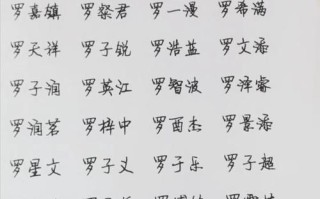 罗嘉镇 罗粲君 罗一漫 罗希满
罗天祥 罗子锐 罗浩益 罗文添
罗子润 罗英江 罗智波 罗泽睿
罗润茗 罗梓中 罗酉杰 罗景添
罗星文 罗子义 罗子乐 罗子超